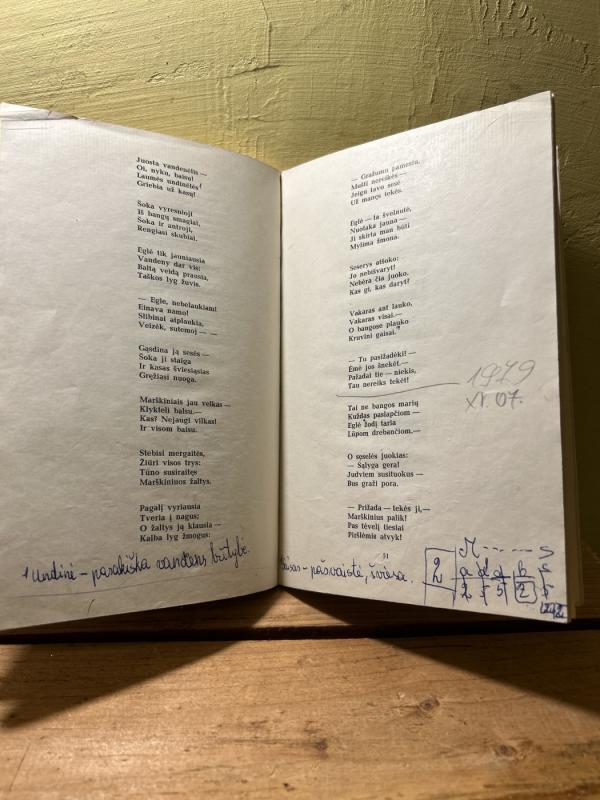 Juosta vandenėlis —
Oi, nyku, baisu!
Laumės undinėlės¹
Griebia už kasų!
Šoka vyresnioji
Iš bangų smagiai,
Šoka ir antroji,
Rengiasi skubiai.
Eglė tik jauniausia
Vandeny dar vis:
Baltą veidą prausia,
Taškos lyg žuvis.
— Egle, nebelaukiam!
Einava namo!
Slibinai atplaukia,
Veizėk, sutemo! — —
Gąsdina ją sesės —
Šoka ji staiga
Ir kasas šviesiąsias
Gręžiasi nuoga.
Marškiniais jau velkas —
Klykteli baisu.—
Kas? Nejaugi vilkas!
Ir visom baisu.
Stebisi mergaitės,
Žiūri visos trys:
Tūno susiraitęs
Marškiniuos žaltys.
Pagalį vyriausia
Tveria į nagus;
O žaltys ją klausia —
Kalba lyg žmogus:
¹ undinė – pasakiška vandens būtybė.
— Gražumu pamesiu,
Mušti nereikės —
Jeigu tavo sesė
Už manęs tekės.
Eglė — ta švelnutė,
Nuotaka jauna —
Ji skirta man būti
Mylima žmona.
Seserys aiškoo:
Jo nebišvaryt!
Nebėra čia juoko.
Kas gi, kas daryt?
Vakaras ant lauko,
Vakaras visai.—
O bangose plauko
Kruvini gaisai.
— Tu pasižadėki! —
Ėmė jos šnekėt.—
Pažadai tie — niekis,
Tau nereiks tekėt!
1979
XI. 07.
Tai ne bangos marių
Kuždas paslapčiom —
Eglė žodį taria
Lūpom drebančiom.—
O seselės juokias:
— Sąlyga gera!
Judviem susituokus —
Bus graži pora.
— Prižada — tekės ji,—
Marškinius palik!
Pas tėvelį tiesiai
Piršlėmis atvyk!
pašvaistė, šviesa.
2